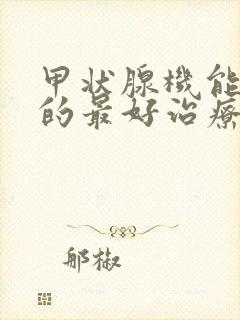 甲状腺機能
的最好治療
郍椒